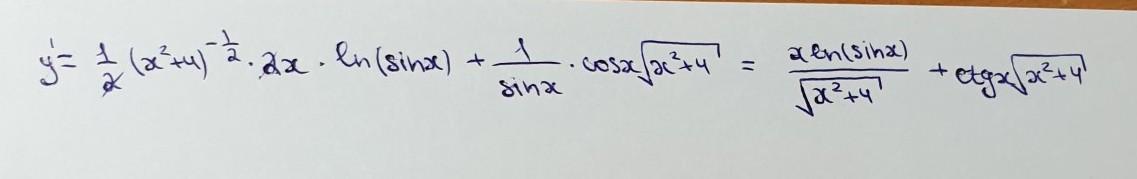 y' = 1/2 (x²+4)^(-1/2) · 2x · ln(sinx) + 1/sinx · cosx√(x²+4) = xln(sinx)/√(x²+4) + ctgx√(x²+4)